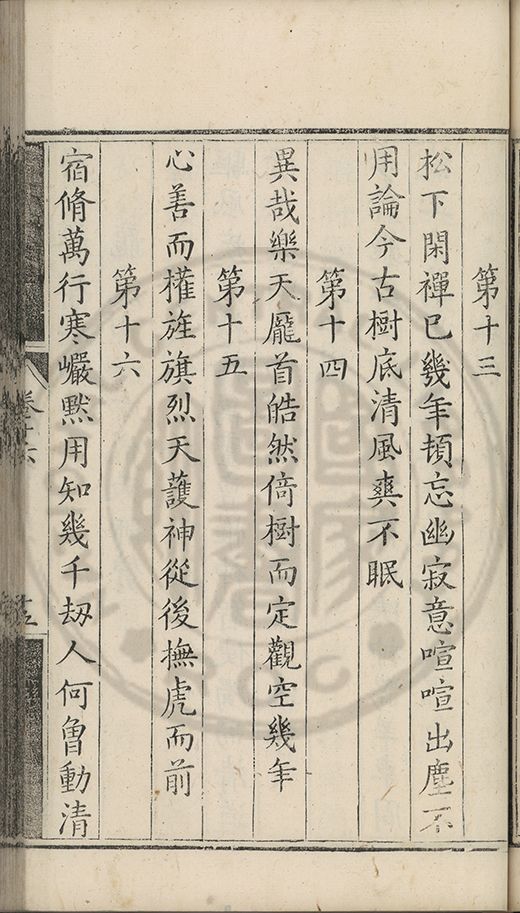 第十三
松下閑禪已幾年頓忘幽寂意喧喧出塵不
用論今古樹底清風爽不眠
第十四
異哉樂天龐首皓然倚樹而定觀空幾年
第十五
心善而權旌旗烈天護神從後撫虎而前
第十六
宿脩萬行寒巖默用知幾千刼人何曾動清
卷十六